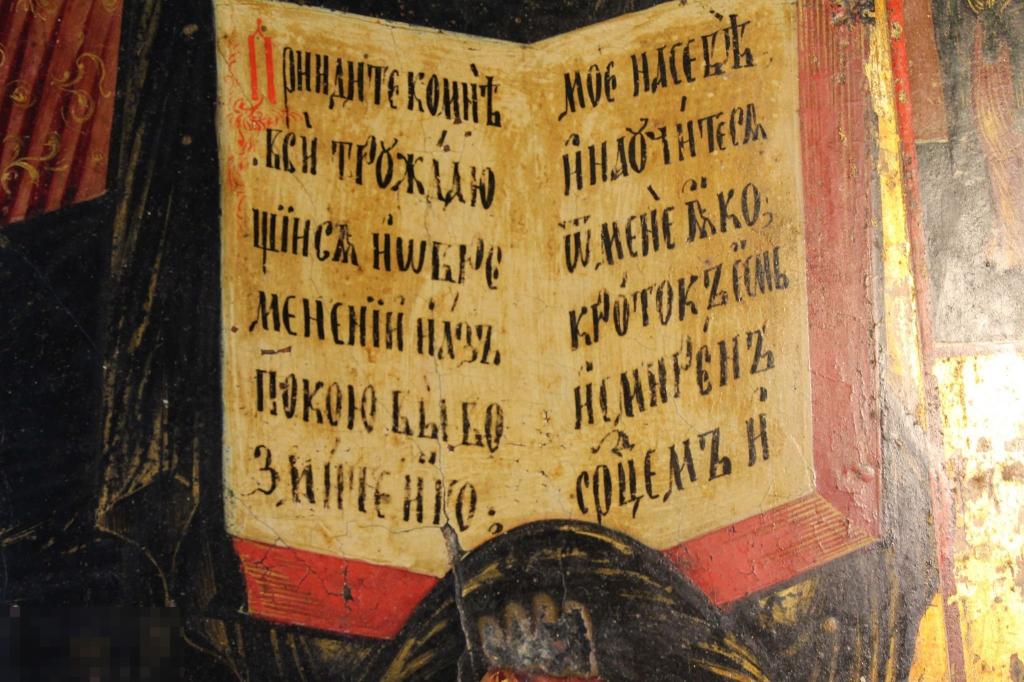 Прїидите ко мнѣ
вси трꙋждаю
щїисѧ и҆ ѡ҆бре
мененїи и҆ а҆зъ
покою вы во
змите и҆ ко:
мое на себѣ
и҆ наꙋчитесѧ
ѿ мене ꙗ҆ко,
кротокъ е҆смь
и҆ смиренъ
срⷣцемъ и҆